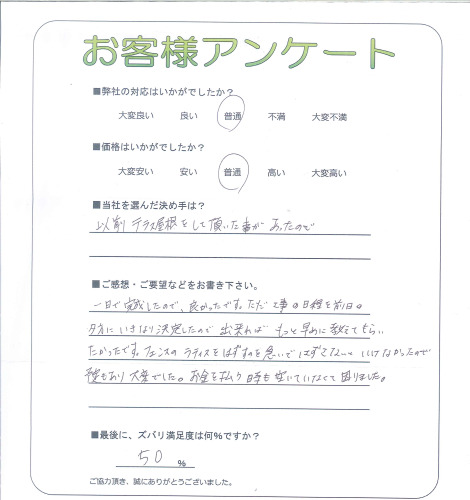 お客様アンケート
■弊社の対応はいかがでしたか？
大変良い 良い 普通 不満 大変不満
■価格はいかがでしたか？
大変安い 安い 普通 高い 大変高い
■当社を選んだ決め手は？
以前テラス屋根をして頂いた事があったので
■ご感想・ご要望などをお書き下さい。
一日で完成したので、良かったです。ただ工事の日程を前日の
夕方にいきなり決定したので出来ればもっと早めに教えてもらい
たかったです。フェンスのラティスをはずすのを急いではずさないといけなかったので
雨もあり大変でした。お金を払う日時も空いていなくて困りました。
■最後に、ズバリ満足度は何%ですか？
50 %
ご協力頂き、誠にありがとうございました。